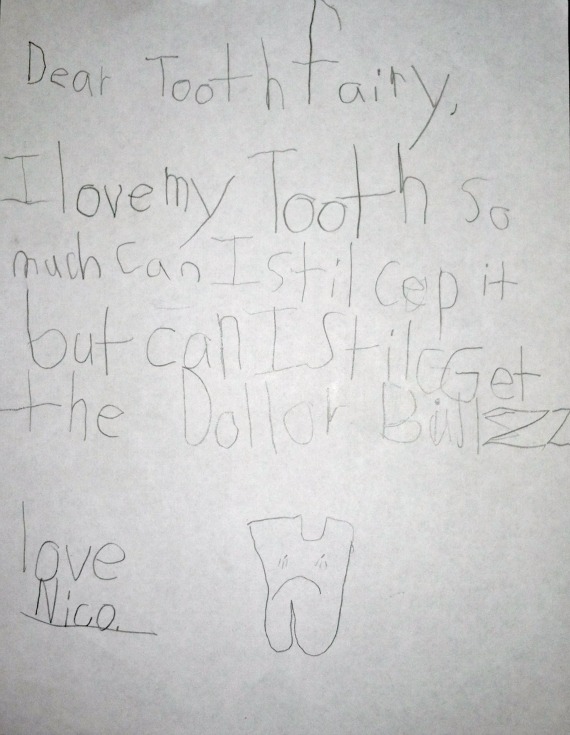 Dear Tooth fairy,
I love my Tooth so
much can I stil cep it
but can I Stil Get
the Dollor Bill
love
Nico.